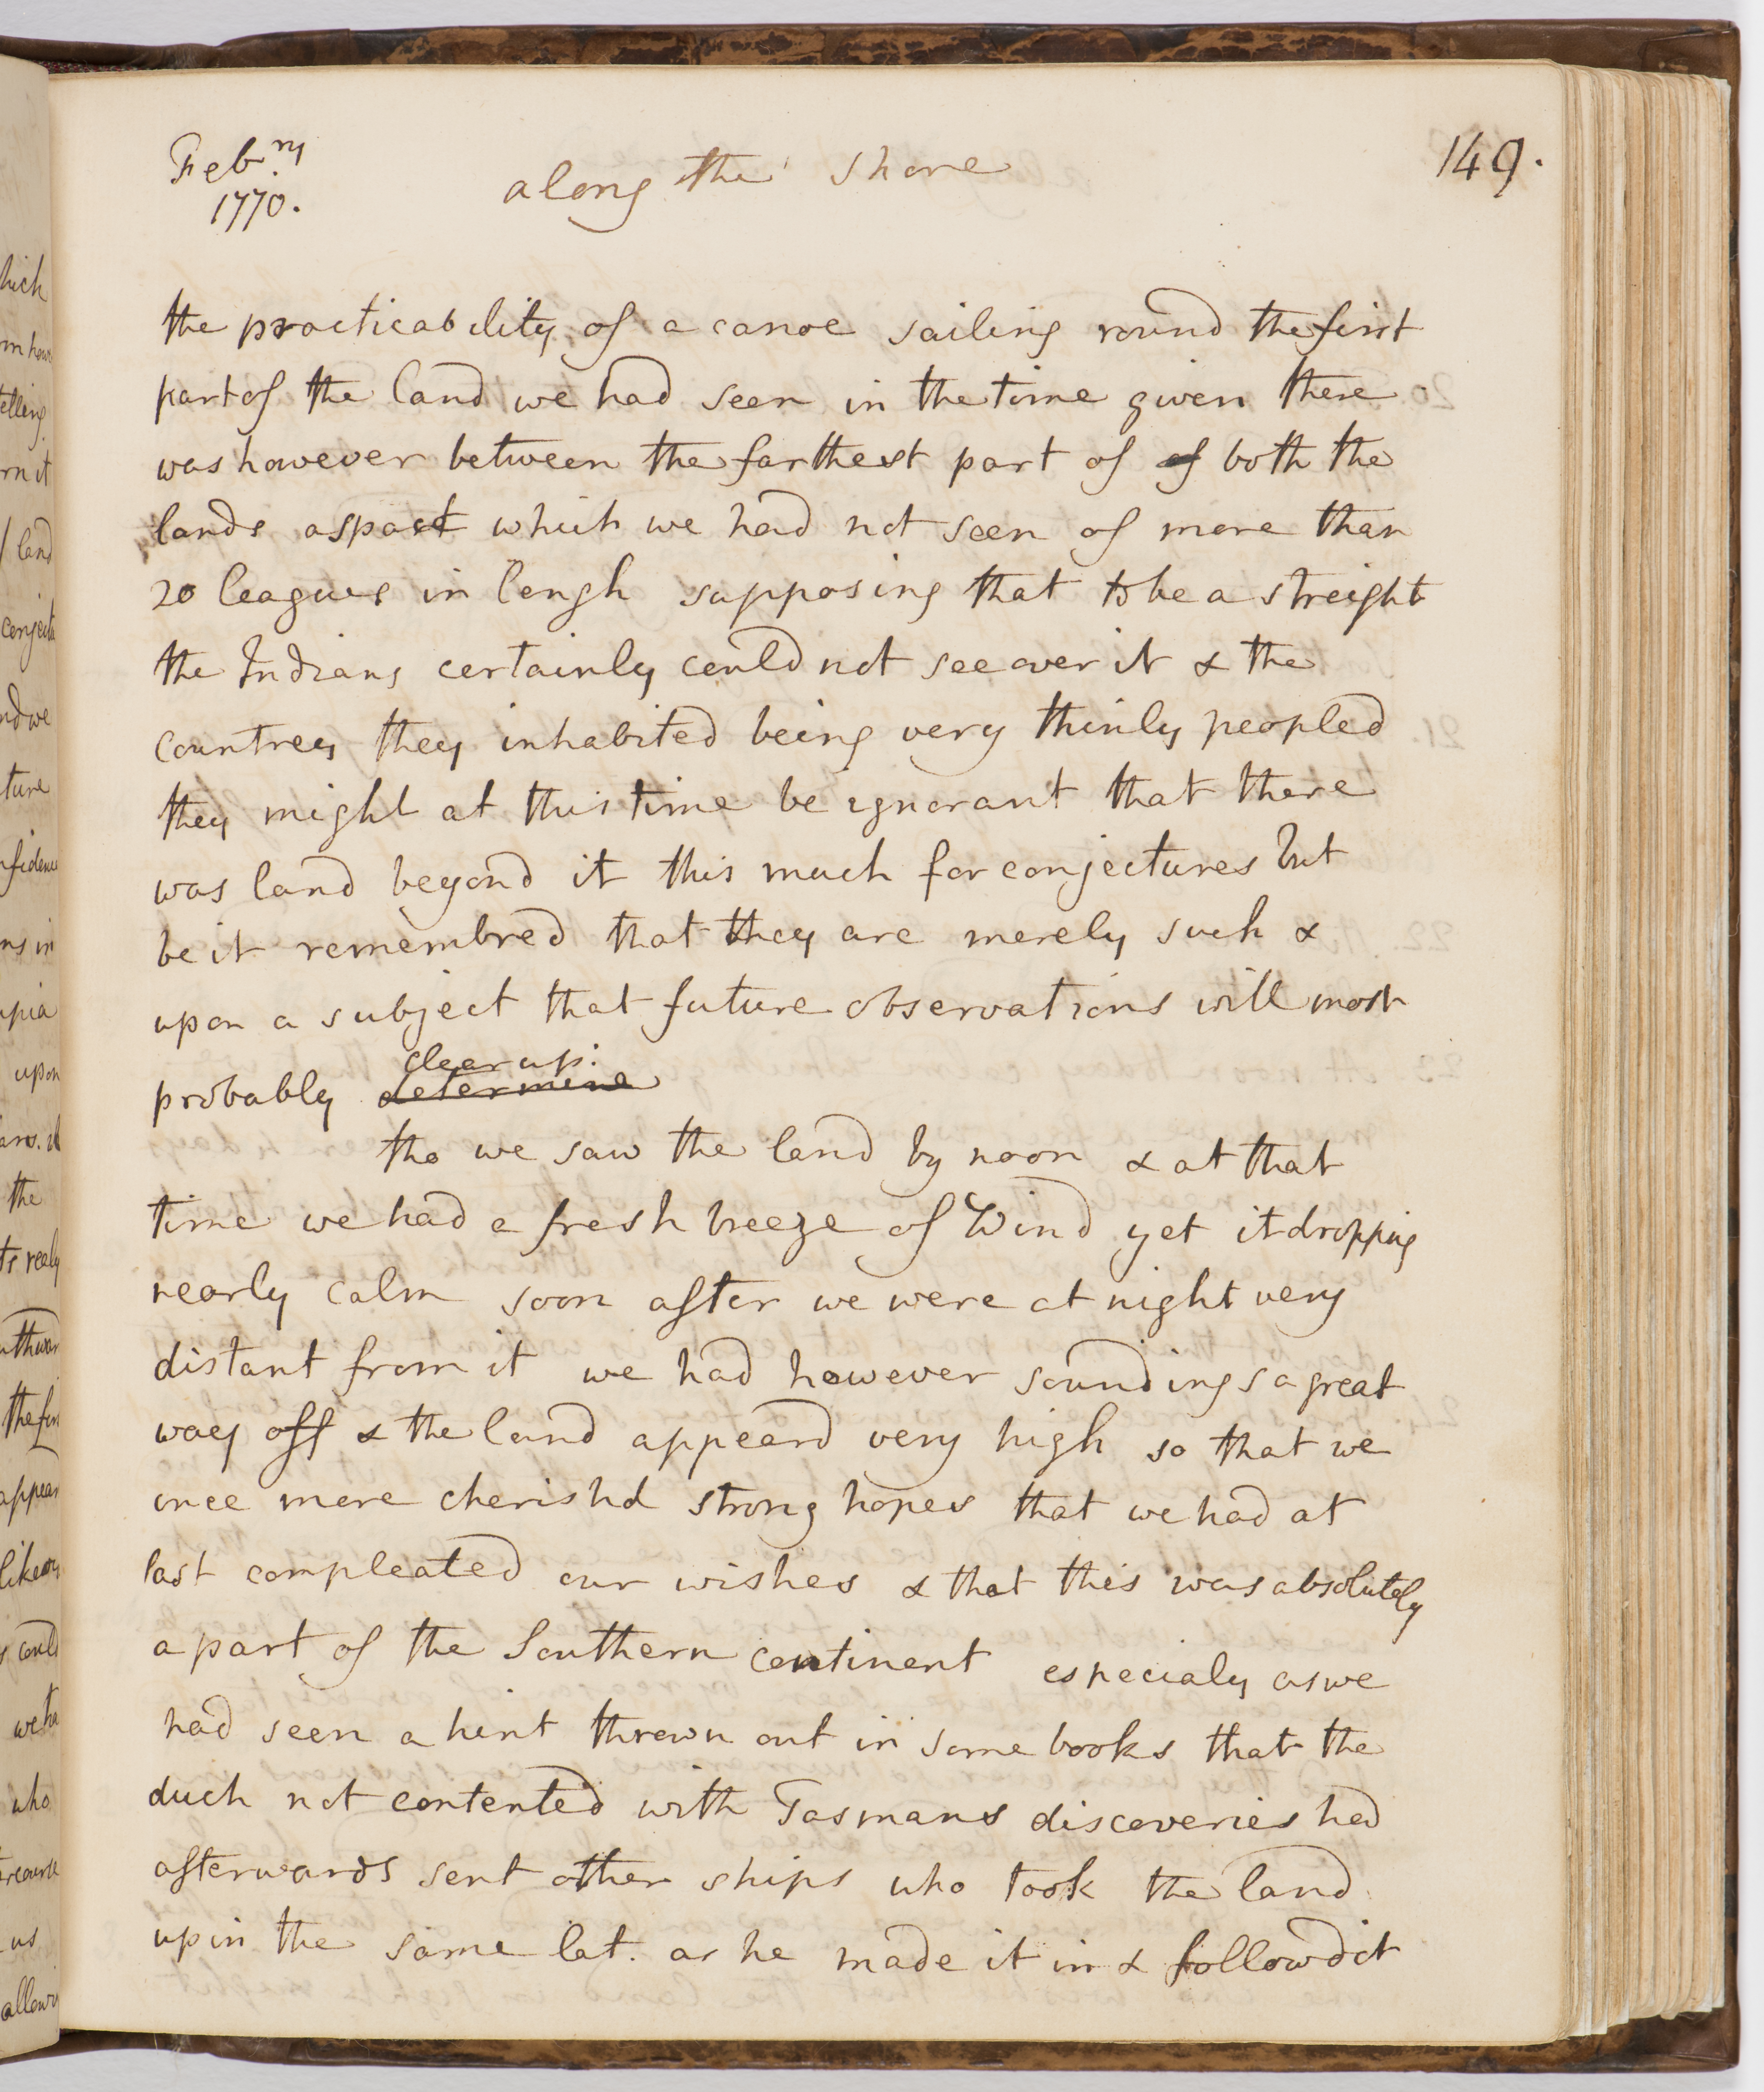 Feb.ry
1770.
along the shore
149.
the practicability of a canoe sailing round the first
part of the land we had seen in the time given there
was however between the farthest part of of both the
lands aspact which we had not seen of more than
20 leagues in lengh supposing that to be a streight
the Indians certainly could not see over it & the
countrey they inhabited being very thinly peopled
they might at this time be ignorant that there
was land beyond it this much for conjectures but
be it remembred that they are merely such &
upon a subject that future observations will most
clear up.
probably determine
tho we saw the land by noon & at that
time we had a fresh breeze of Wind yet it dropping
nearly calm soon after we were at night very
distant from it we had however soundings a great
way off & the land appeard very high so that we
once more cherishd strong hopes that we had at
last compleated our wishes & that this was absolutely
a part of the Southern continent especialy as we
had seen a hint thrown out in some books that the
duch not contented with Tasmans discoveries had
afterwards sent other ships who took the land
up in the same lat. as he made it in & followd it
hich
telling
rn it
land
nd we
ture
ns in
upia
upon
the
the fir
appear
who
us